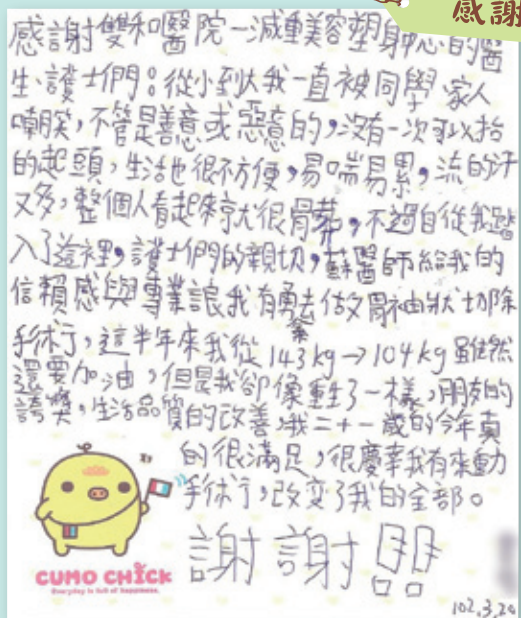 感謝
感謝雙和醫院－減重美容塑身中心的醫
生、護士們。從小到大我一直被同學、家人
嘲笑，不管是善意或惡意的，沒有一次可以抬
的起頭，生活也很不方便，易喘易累，流的汗
又多，整個人看起來亨尤很骨葬，不過自從我踏
入了這裡，護士們的親切，蘇醫師給我的
信賴感與專業讓我有勇氣去做胃袖狀切除
手術，這半年來我從143kg→104kg 雖然
還要加油，但是我卻像重生了一樣，朋友的
誇獎，生活品質的改善，我二十一歲的今年真
的很滿足，很慶幸我有來動
手術，改变了我的全部。
謝謝!!
CUMO CHICK
Everyday is full of happiness.
102.3.20